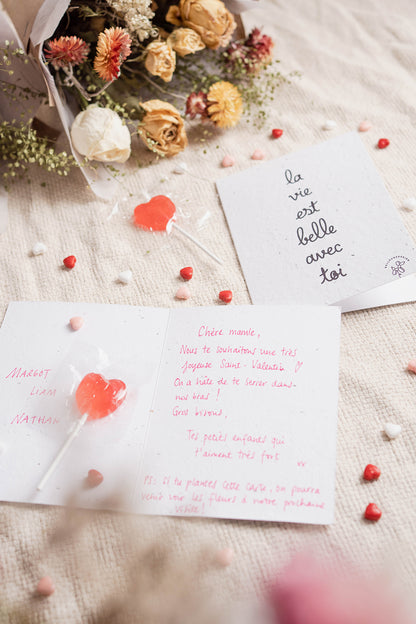 la
vie
est
belle
avec
toi
Margot
Liam
Nathan
Chère mamie,
Nous te souhaitons une très
joyeuse Saint-Valentin ♡
On a hâte de te serrer dans
nos bras !
Gros bisous,
Tes petits enfants qui
t'aiment très fort
xx
PS: Si tu plantes cette carte, on pourra
venir voir les fleurs à notre prochaine
visite !